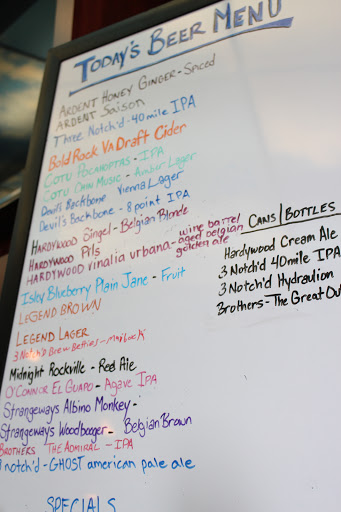 TODAY'S BEER MENU
ARDENT HONEY GINGER - Spiced
ARDENT Saison
Three Notch'd - 40 mile IPA
Bold Rock VA Draft Cider
COTU POCAHOPTAS - IPA
COTU OHN MUSIC - Amber Lager
Devil's Backbone Vienna Lager
Devil's Backbone - 8 point IPA
HARDYWOOD Singel - Belgian Blonde
HARDYWOOD Pils
HARDYWOOD vinalia urbana - wine barrel aged belgian golden ale
Isley Blueberry Plain Jane - Fruit
LEGEND BROWN
LEGEND LAGER
3 Notch'd Brew Betties - Maibock
Midnight Rockville - Red Ale
O'CONNOR EL GUAPO - Agave IPA
Strangeways Albino Monkey -
Strangeways Woodbooger - Belgian Brown
BROTHERS THE ADMIRAL - IPA
notch'd - GHOST american pale ale
SPECIALS
CANS | BOTTLES
Hardywood Cream Ale
3 Notch'd 40 mile IPA
3 Notch'd Hydraulion
Brothers - The Great Out